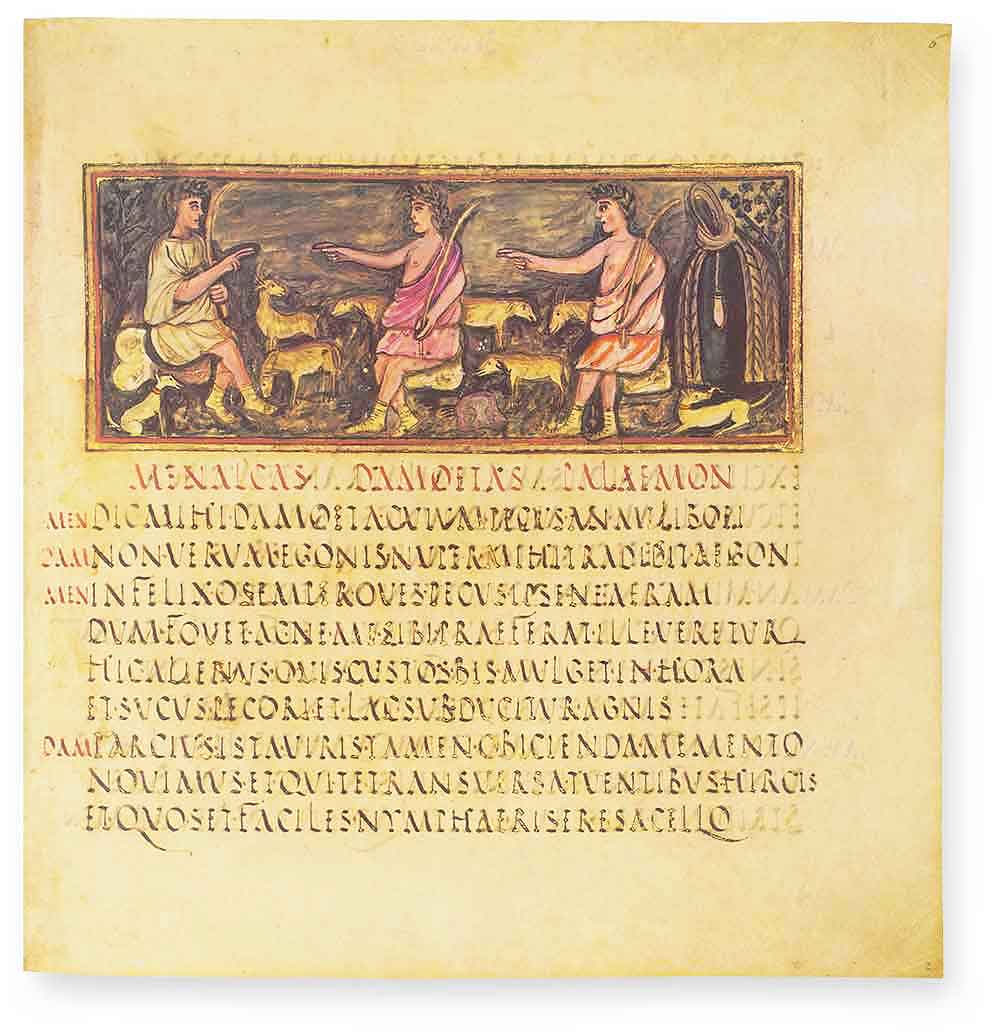 6
MENALCAS DAMOETAS PALAEMON
MEN DIC·MIHI·DAMOETA·CVIVM·PECVS·AN·MELIBOEI
DAM NON·VERVM·AEGONIS·NVPER·MIHI·TRADIDIT·AEGON
MEN INFELIX·O·SEMPER·OVES·PECVS·IPSE·NEAERAM
DVM·FOVET·AC·NE·ME·SIBI·PRAEFERAT·ILLE·VERETVR
HIC·ALIENVS·OVIS·CVSTOS·BIS·MVLGET·IN·HORA
ET·SVCVS·PECORI·ET·LAC·SVBDVCITVR·AGNIS
DAM PARCIVS·ISTA·VIRIS·TAMEN·OBICIENDA·MEMENTO
NOVIMVS·ET·QVI·TE·TRANSVERSA·TVENTIBVS·HIRCIS
ET·QVO·SET·FACILES·NYMPHAE·RISERE·SACELLO